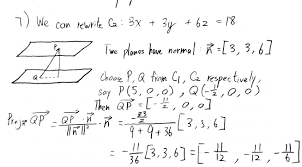 7) We can rewrite C₂: 3x + 3y + 6z = 18
Two planes have normal: n⃗ = [3, 3, 6]
P
Q
Choose P, Q from C₁, C₂ respectively,
say P(5, 0, 0), Q(-½, 0, 0)
Then QP⃗ = [-11/2, 0, 0]
Proj QP⃗ = QP⃗ · n⃗ / ‖n⃗‖² · n⃗ = / 9 + 9 + 36 [3, 3, 6]
= -11/36 [3, 3, 6] = [-11/12, -11/12, -11/6]